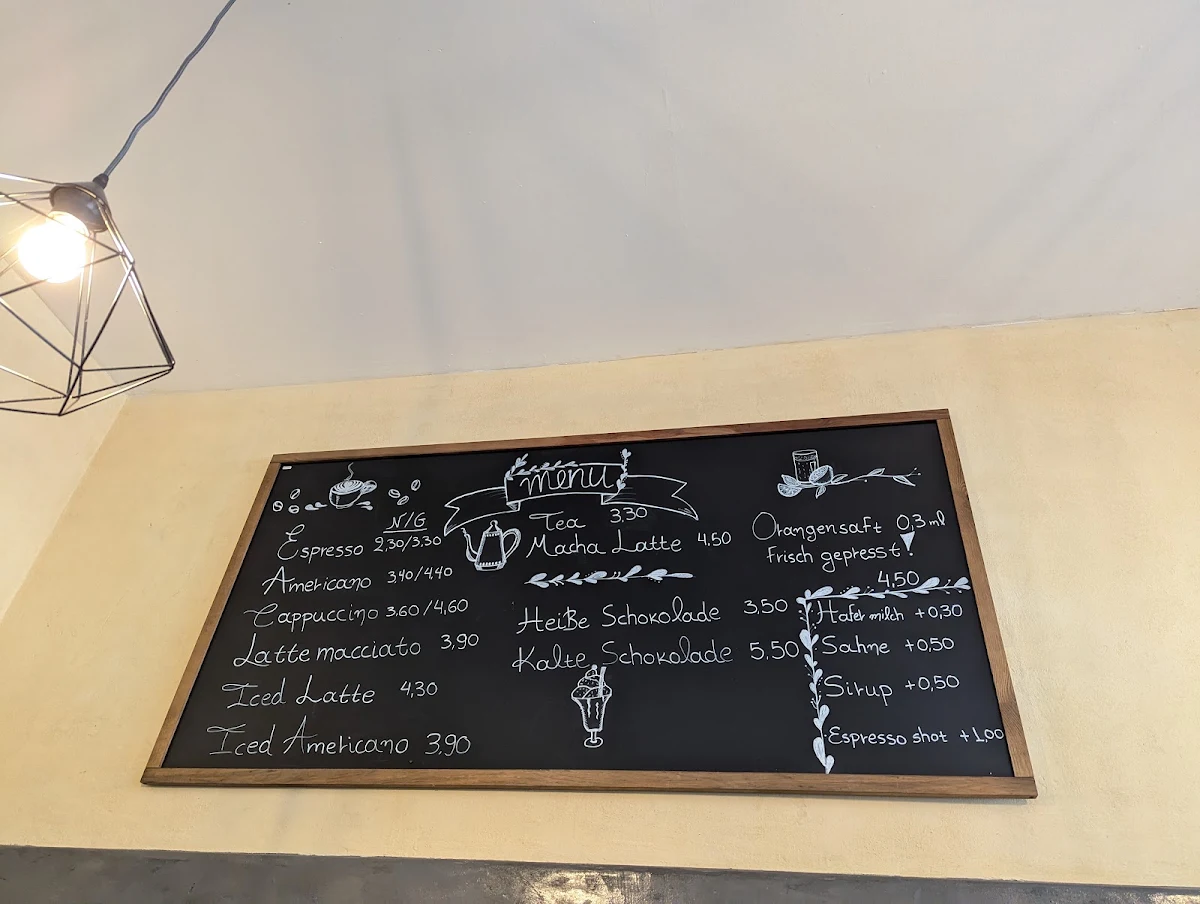 menu
N/G
Espresso 2,30/3,30
Americano 3,40/4,40
Cappuccino 3,60/4,60
Latte macciato 3,90
Iced Latte 4,30
Iced Americano 3,90
Tea 3,30
Macha Latte 4,50
Heiße Schokolade 3,50
Kalte Schokolade 5,50
Orangensaft 0,3 ml
frisch gepresst!
4,50
Hafer milch +0,30
Sahne +0,50
Sirup +0,50
Espresso shot +1,00